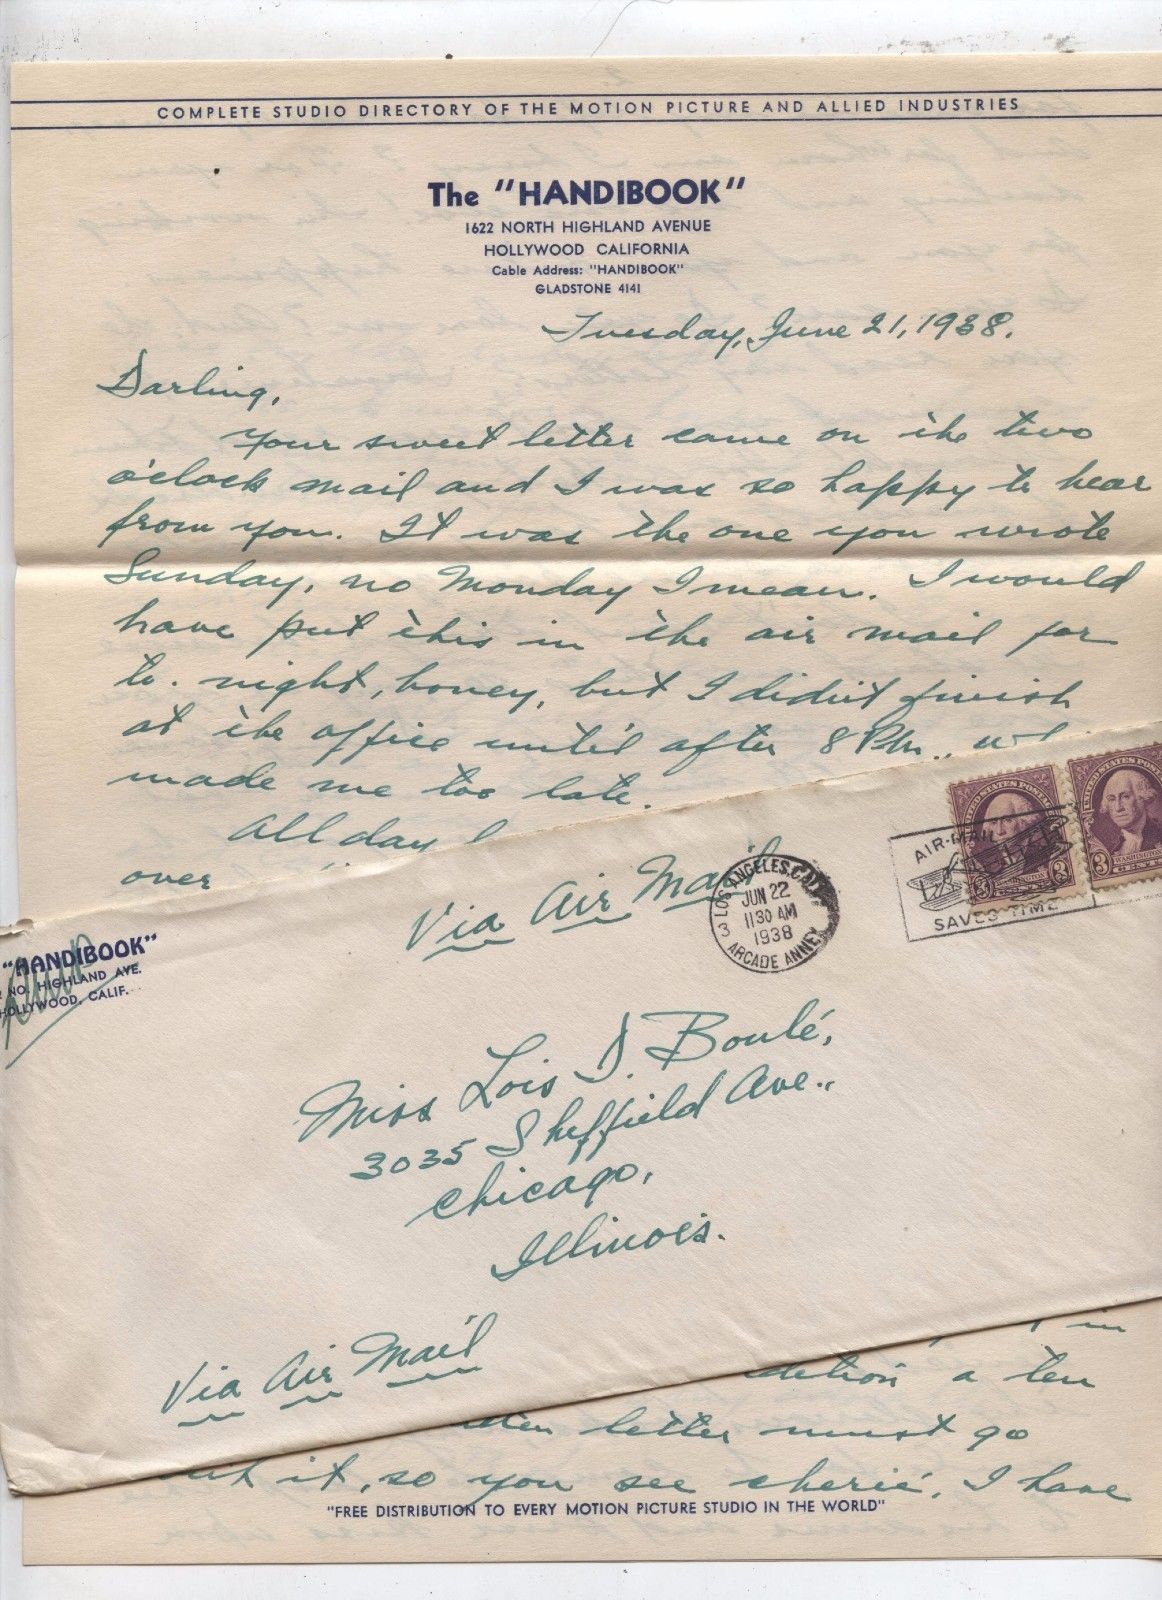 COMPLETE STUDIO DIRECTORY OF THE MOTION PICTURE AND ALLIED INDUSTRIES
The "HANDIBOOK"
1622 NORTH HIGHLAND AVENUE
HOLLYWOOD CALIFORNIA
Cable Address: "HANDIBOOK"
GLADSTONE 4141
Tuesday, June 21, 1938.
Darling,
Your sweet letter came on the two
o'clock mail and I was so happy to hear
from you. It was the one you wrote
Sunday, no Monday I mean. I would
have put this in the air mail for
to-night, honey, but I didn't finish
at the office until after 8 P.M.,
made me too late.
All day
over
Via Air Mail
LOS ANGELES, CALIF.
JUN 22
11 30 AM
1938
3
ARCADE ANNEX
AIR-MAIL
SAVES TIME
UNITED STATES POSTAGE
3 WASHINGTON 3
CENTS
UNITED STATES POSTAGE
3 WASHINGTON
CENTS
"HANDIBOOK"
NO. HIGHLAND AVE.
HOLLYWOOD, CALIF.
Miss Lois D. Boulé,
3035 Sheffield Ave.,
Chicago,
Illinois.
Via Air Mail
in
dition a ten
letter must go
it, so you see cherié, I have
"FREE DISTRIBUTION TO EVERY MOTION PICTURE STUDIO IN THE WORLD"